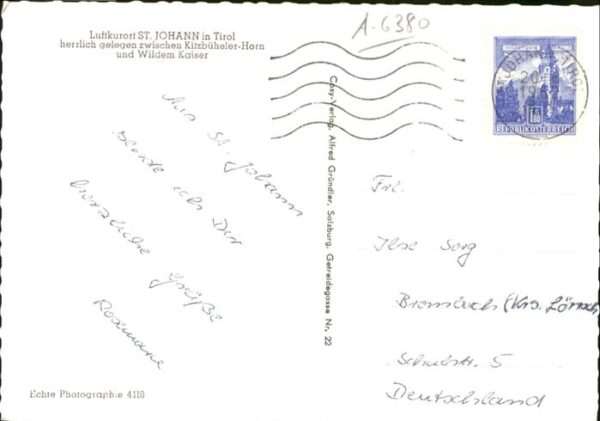 A-6380
Luftkurort ST. JOHANN in Tirol
herrlich gelegen zwischen Kitzbüheler-Horn
und Wildem Kaiser
Aus St. Johann
sende ich Dir
herzliche Grüße
Roxmarie
Echte Photographie 4118
Cosy-Verlag, Alfred Gründler, Salzburg, Getreidegasse Nr. 22
ST. JOHANN TIROL
20
REPUBLIK ÖSTERREICH
Frl.
Ilse Sorg
Brombach (Krs. Lörrach
5
Deutschland